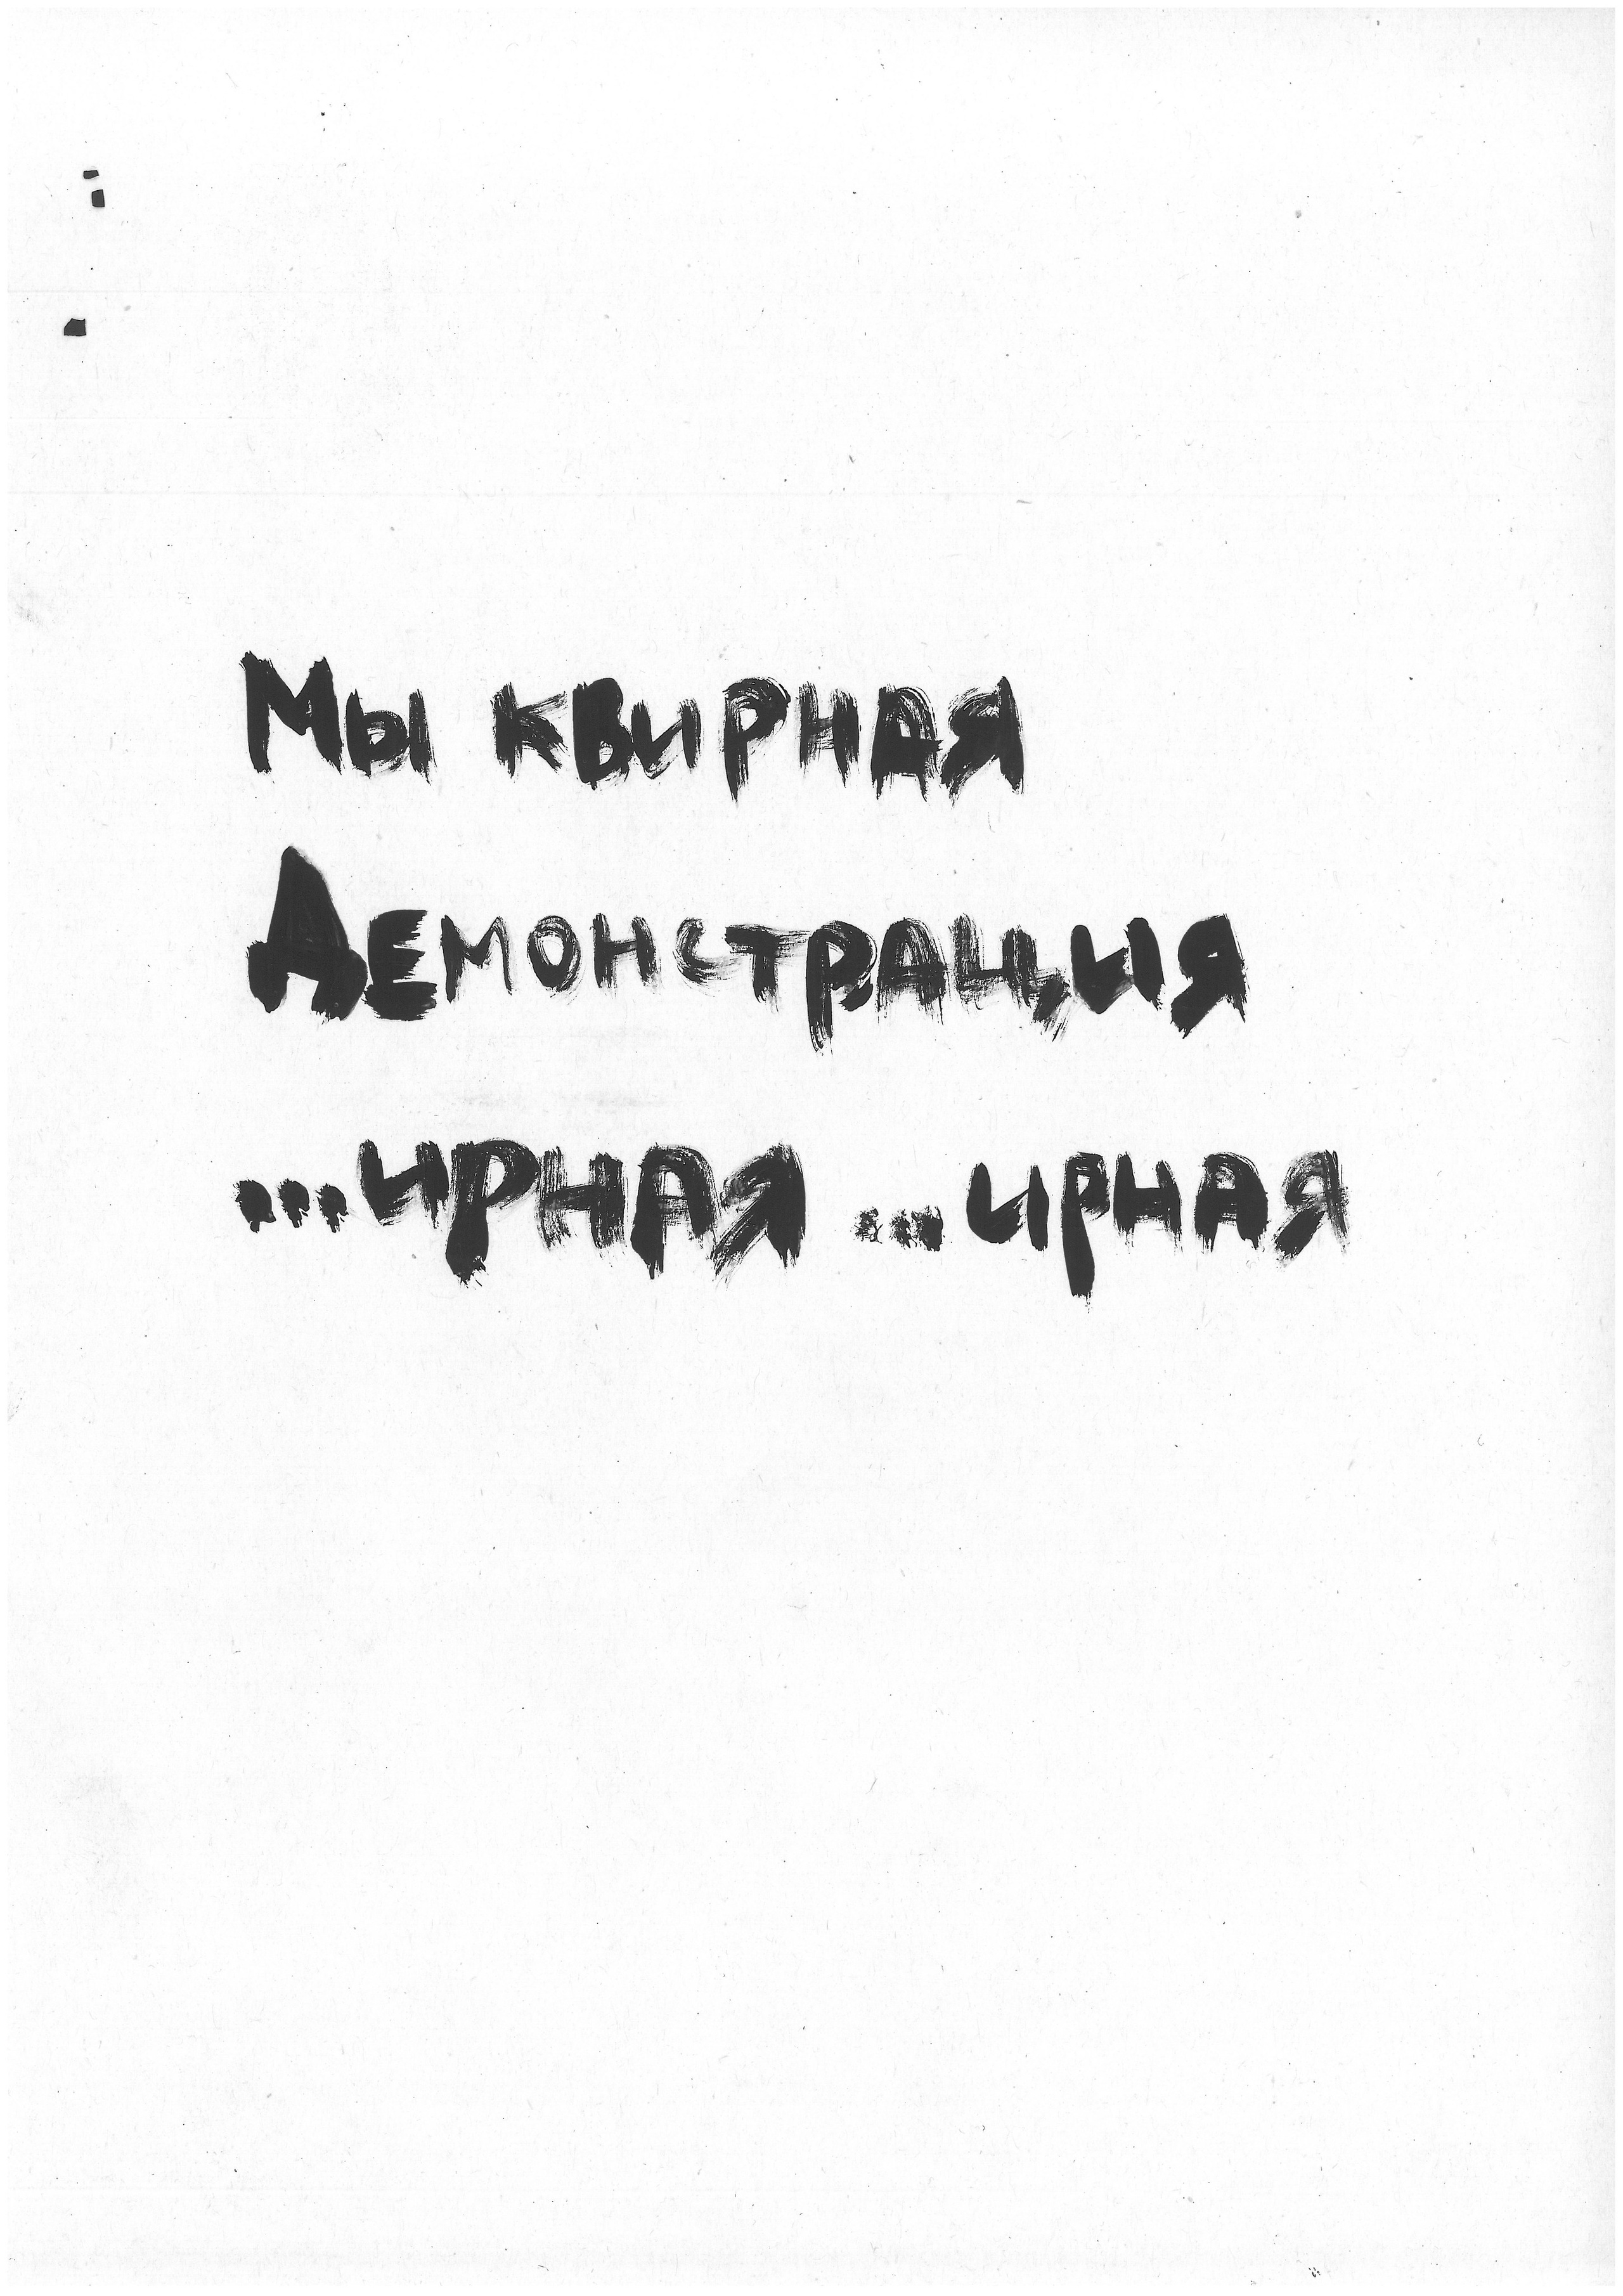 Мы квирная
Демонстрация
...ирная ...ирная